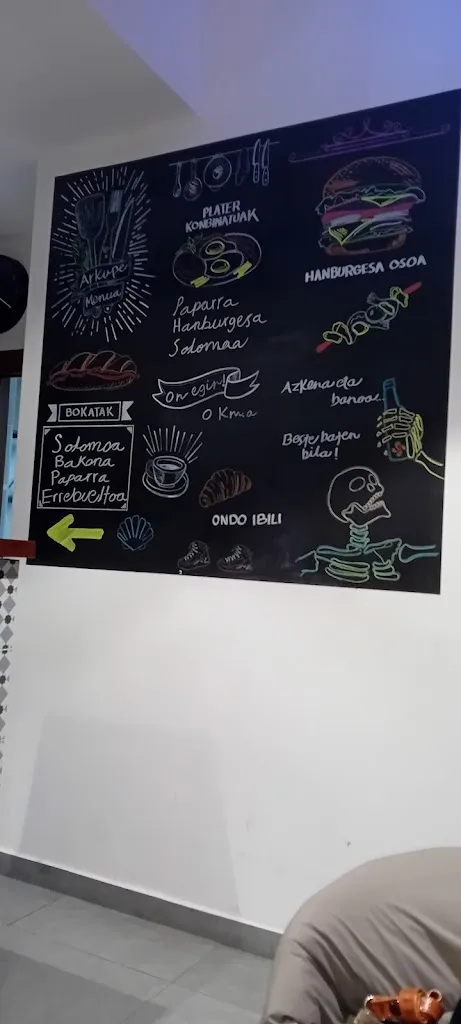 Arkupe
Menua
PLATER
KONBINATUAK
Paparra
Hanburgesa
Solomoa
HANBURGESA OSOA
BOKATAK
Solomoa
Bakona
Paparra
Errebueltoa
On egin!
0 Kmia
Azkena eta
banoa..
Beste baten
bila!
ONDO IBILI